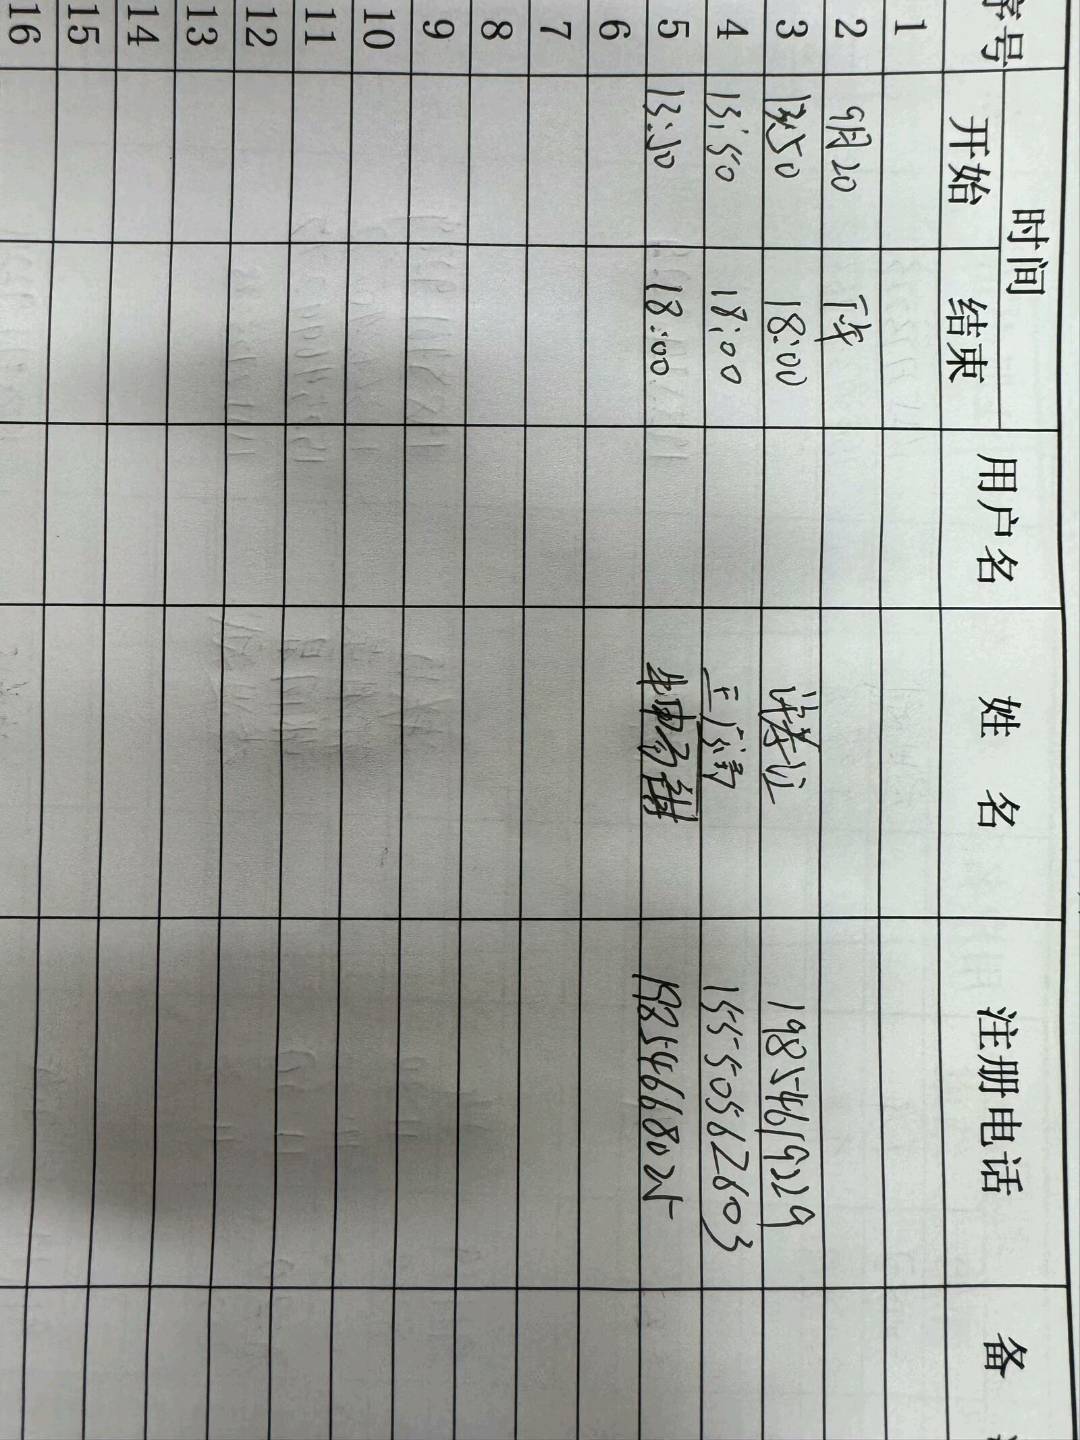 序号 时间 用户名 姓名 注册电话 备
开始 结束
1
2 9月20 下午
3 13:50 18:00 19854619229
4 13:50 18:00 15550562603
5 13:30 18:00 19854668025
6
7
8
9
10
11
12
13
14
15
16